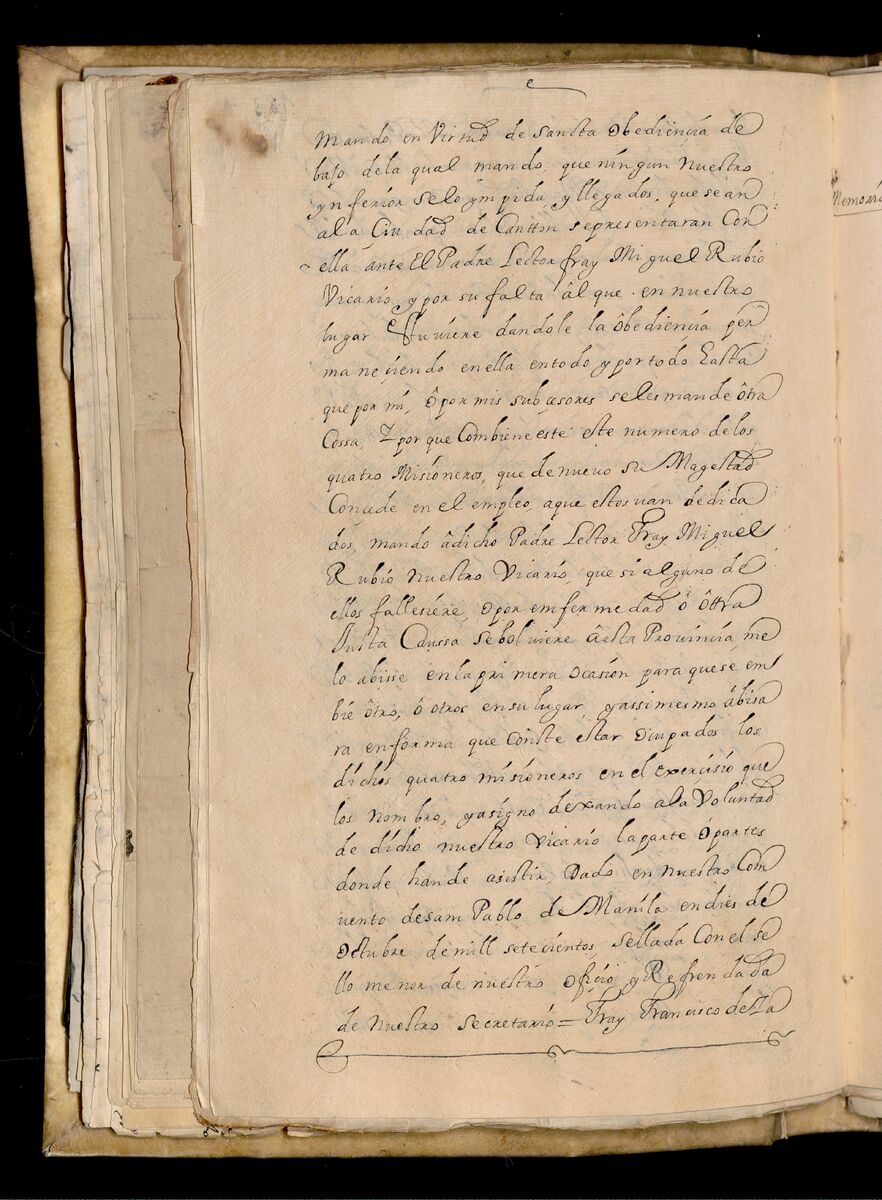 mando en Virtud de sancta Obediençia de
bajo dela qual mando, que ningun Nuestro
ynferior selo ympida, y llegados, que sean
ala Ciudad de Cantton sepresentaran Con
ella ante El Padre Lector fray Miguel Rubio
Vicario, y por su falta âl que en nuestro
lugar Estuviere dandole la Ôbediencia per
maneçiendo en ella entodo y por todo Easta
que por mi, ô por mis subçesores seles mande ôtra
Cossa, Y por que Combiene esté este numero delos
quatro Misioneros, que denuevo su Magestad
Concede en el empleo, aque estos van dedica
dos, mando âdicho Padre Lector Fray Miguel
Rubio Nuestro Vicario, que si alguno de
ellos fallesiére, o por emfermedad ô ôttra
Justa Caussa sebolviere âesta Provincia, me
lo abisse en la primera ocasion para que se em
bie ôtro, ô otros en su lugar, y assimesmo âbisa
ra en forma que Conste estar Ocupados los
dichos quatro misioneros en el Exercisio que
los nombro, y asigno dexando ala Voluntad
de dicho nuestro Vicario laparte ó partes
donde hande asistir, Dado en Nuestro Com
uento desam Pablo de Manila en dies de
Octubre de mill setecientos, sellada Con el se
llo menor de nuestro oficio, y Refrendada
de Nuestro secretario = Fray Francisco de Za
Memoria